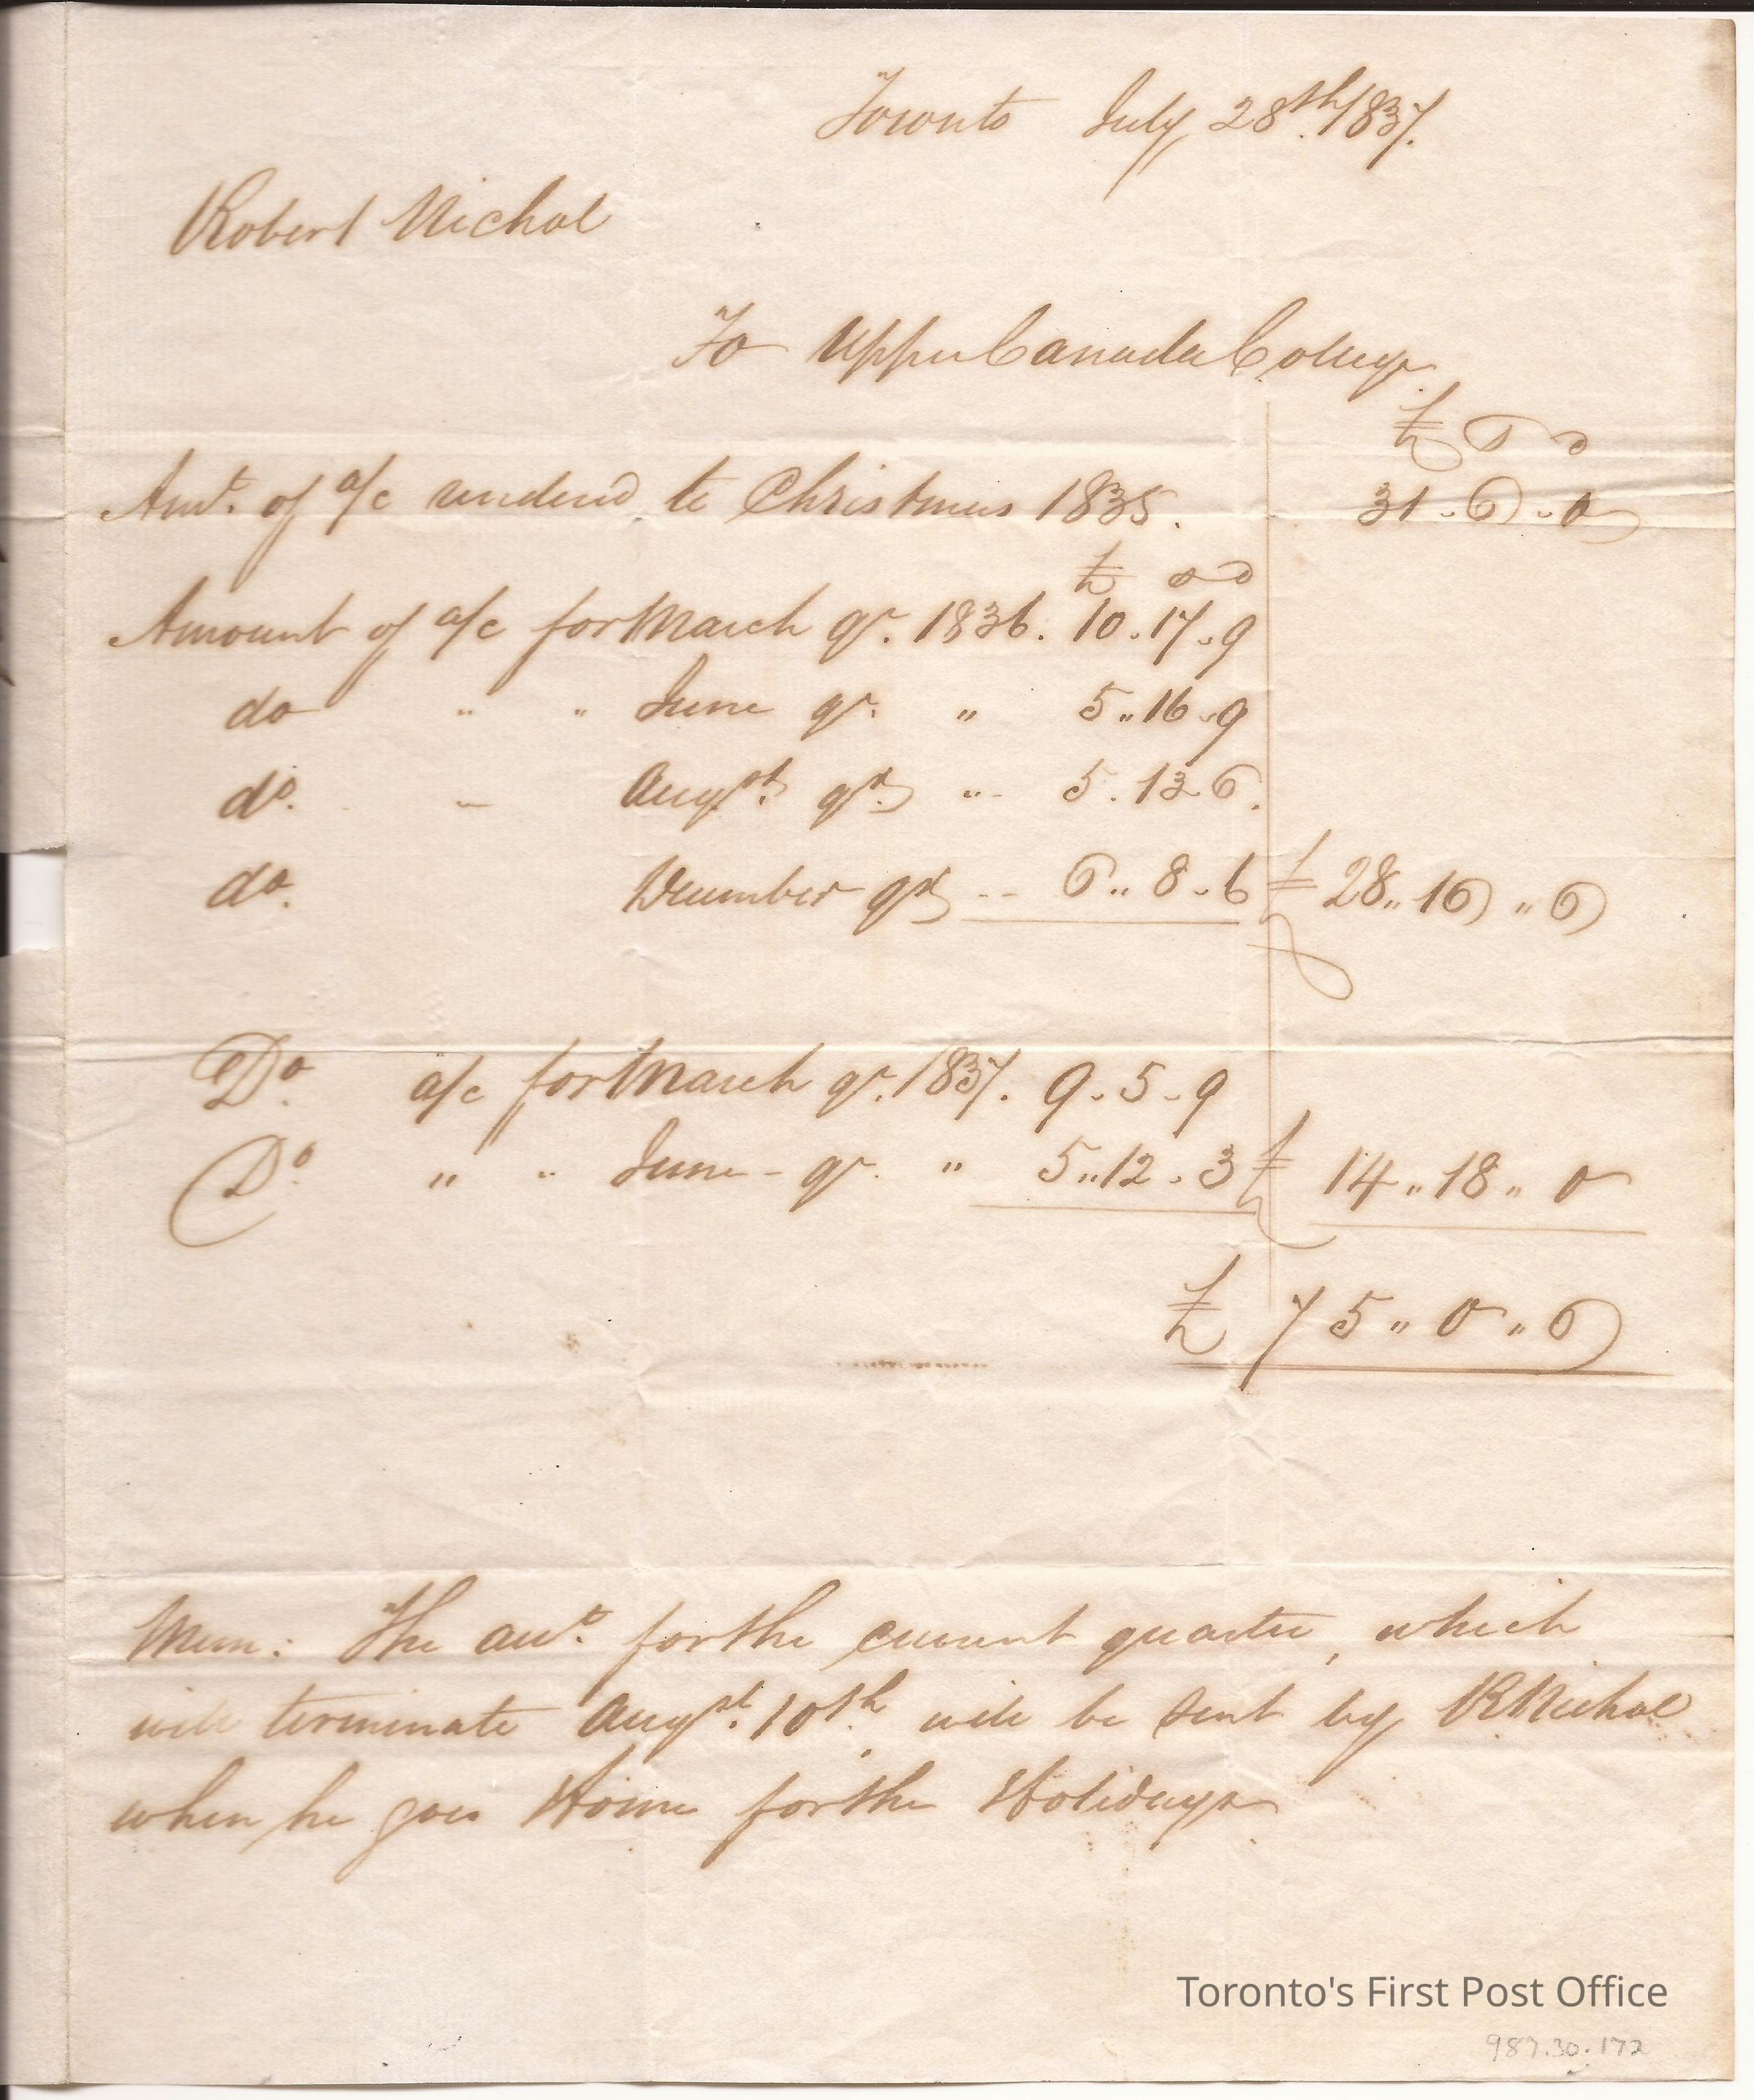 Toronto July 28th. 1837.
Robert Nichol
To Upper Canada College
£ s d
Amt. of a/c rendered to Christmas 1835. 31. 6. 0
£ s d
Amount of a/c for March qr. 1836. 10. 17. 9
do " " June qr. " 5 " 16. 9
do. " Augst. qr. " 5. 12 6.
do. December qr. -- 6 " 8. 6 £ 28 " 16 " 6
Do. a/c for March qr. 1837. 9. 5. 9
Do. " " June - qr. " 5 " 12. 3 £ 14 " 18 " 0
£ 75 " 0 " 6
Mem: The amt. for the current quarter, which
will terminate Augst. 10th. will be sent by R Nichol
when he goes Home for the Holidays
Toronto's First Post Office
987.30.172